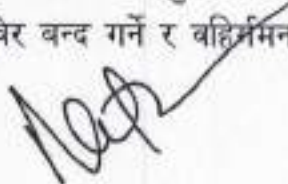 बन्द गर्ने र बहिर्गमन